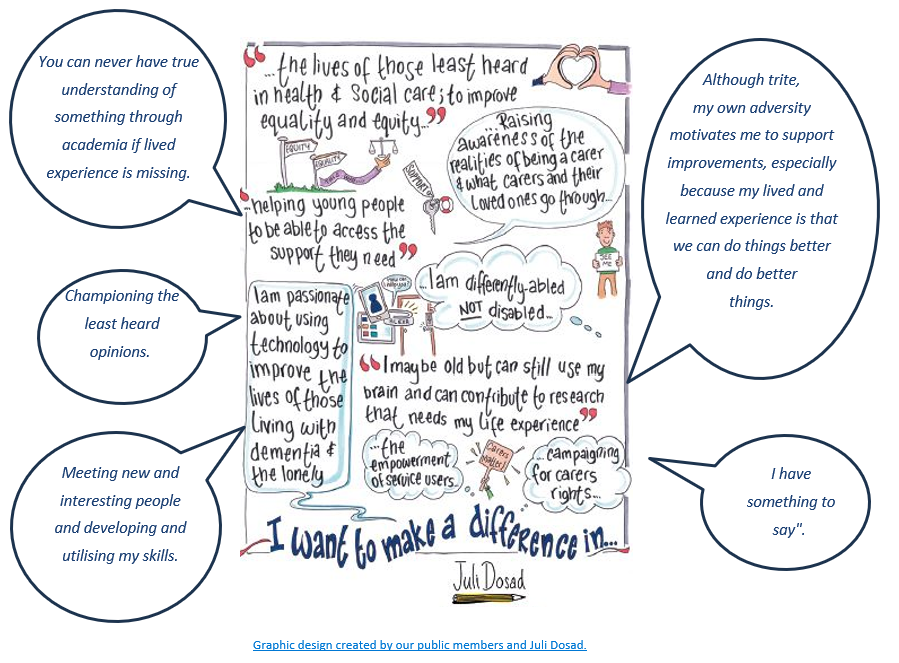 You can never have true
understanding of
something through
academia if lived
experience is missing.
Championing the
least heard
opinions.
Meeting new and
interesting people
and developing and
utilising my skills.
“...the lives of those least heard
in health & social care; to improve
equality and equity...”
EQUITY
EQUALITY
...Raising
awareness of the
realities of being a carer
& what carers and their
loved ones go through...
SUPPORT
‘...helping young people
to be able to access the
support they need”
SEE
ME
...I am differently-abled
NOT disabled...
I am passionate
about using
technology to
improve the
lives of those
living with
dementia &
the lonely
“I maybe old but can still use my
brain and can contribute to research
that needs my life experience”
...the
empowerment
of service users...
Carers
Matter!
...campaigning
for carers
rights...
I want to make a difference in...
Juli Dosad
Although trite,
my own adversity
motivates me to support
improvements, especially
because my lived and
learned experience is that
we can do things better
and do better
things.
I have
something to
say".
Graphic design created by our public members and Juli Dosad.